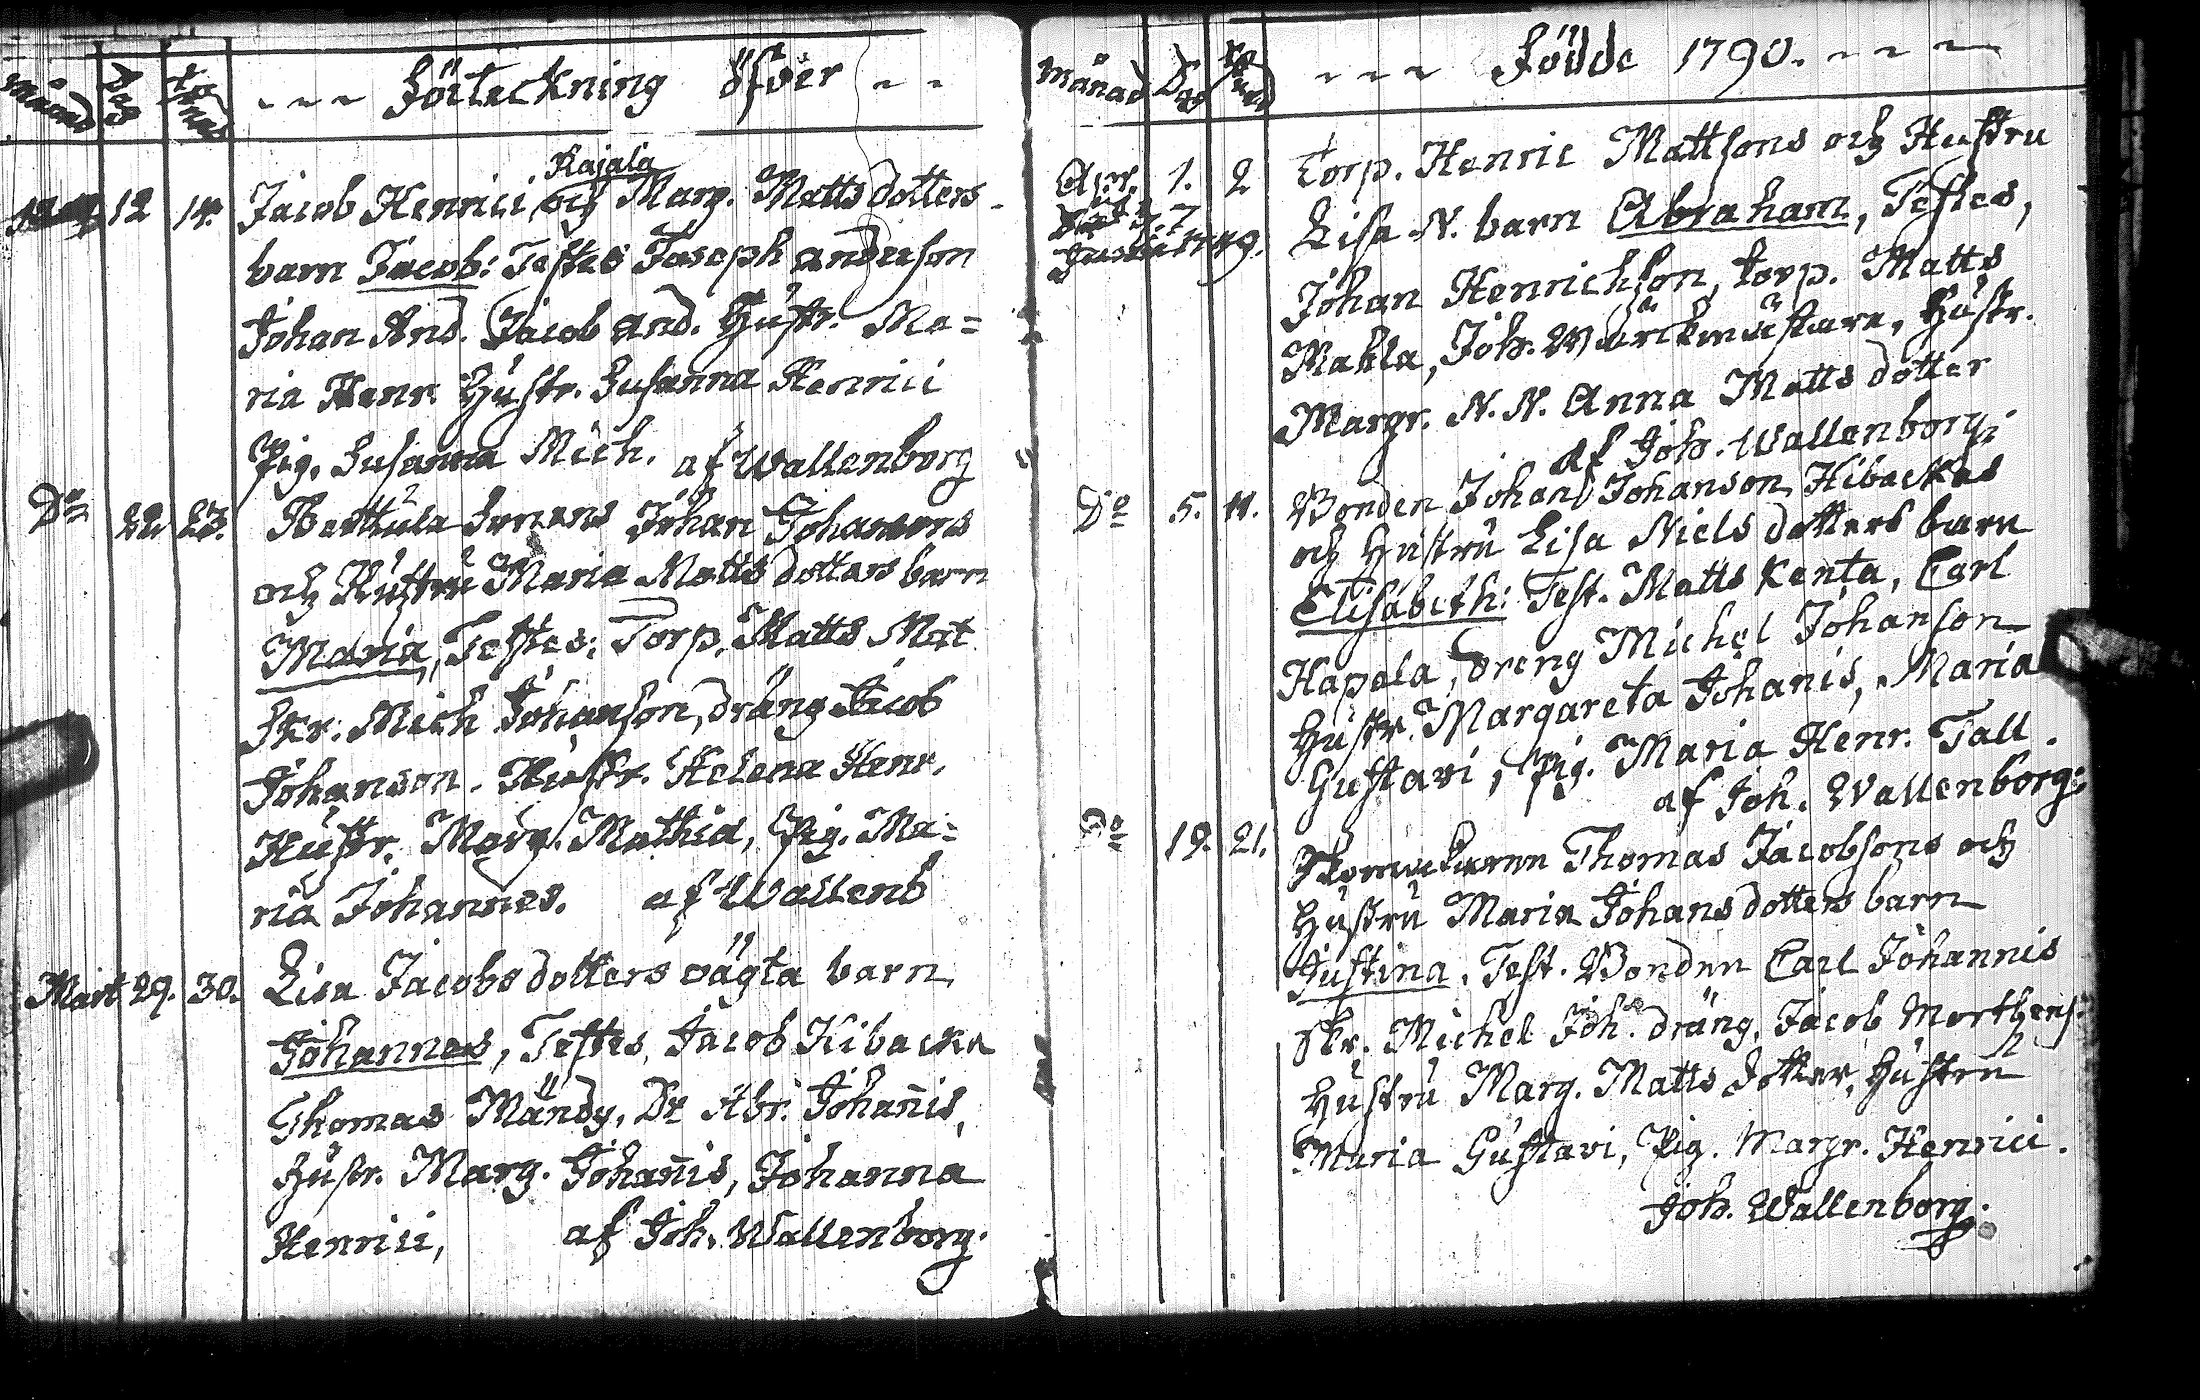 Månad Dag Xstnad --- Förteckning öfver --
12 14. Jacob Henrici Kajala och Marg. Mattsdotters
barn Jacob: Testes Joseph anderson
Johan And. Jacob And. Hustr. Ma=
ria Henr. Hustr. Susanna Henrici
Pig. Susanna Mich. af Wallenborg
Do 22. 23. Johan Johansons
och Hustru Maria Mattsdotters barn
Maria, Testes; Torp. Matts Mat
Skr. Mich Johanson, dräng Jacob
Johanson. Hustr. Helena Henr.
Hustr. Marg. Mathiæ, Pig. Ma=
ria Johannes. af Wallenb
Mart 29. 30. Lisa Jacobsdotters oägta barn
Johannes, Testes, Jacob Kibacka
Thomas Mändy, Dr Abr. Johanis,
Hustr. Marg. Johanis, Johanna
Henrici, af Joh. Wallenborg.
Månad Dag --- Födde 1790. ---
Apr. 1. 2 Torp. Henric Mattsons och Hustru
Lisa N. barn Abraham, Testes,
Johan Henrichson, torp. Matts
Makla, Joh. Wärckmästare, Hustr.
Margr. N. N. Anna Mattsdotter
af Joh. Wallenborg.
Do 5. 11. Bonden Johan Johanson Kibackas
och Hustru Lisa Nielsdotters barn
Elisabeth: Test. Matts Kenta, Carl
Hapala, Dreng Michel Johanson
Hustr. Margareta Johanis, Maria
Gustavi, Pig. Maria Henr. Tall.
af Joh. Wallenborg.
Do 19. 21. Thomas Jacobsons och
Hustru Maria Johansdotters barn
Justina. Test. Bonden Carl Johannis
Skr. Michel Joh. dräng. Jacob Morthens.
Hustru Marg. Matts dotter, Hustru
Maria Gustavi, Pig. Margr. Henrici.
Joh. Wallenborg.